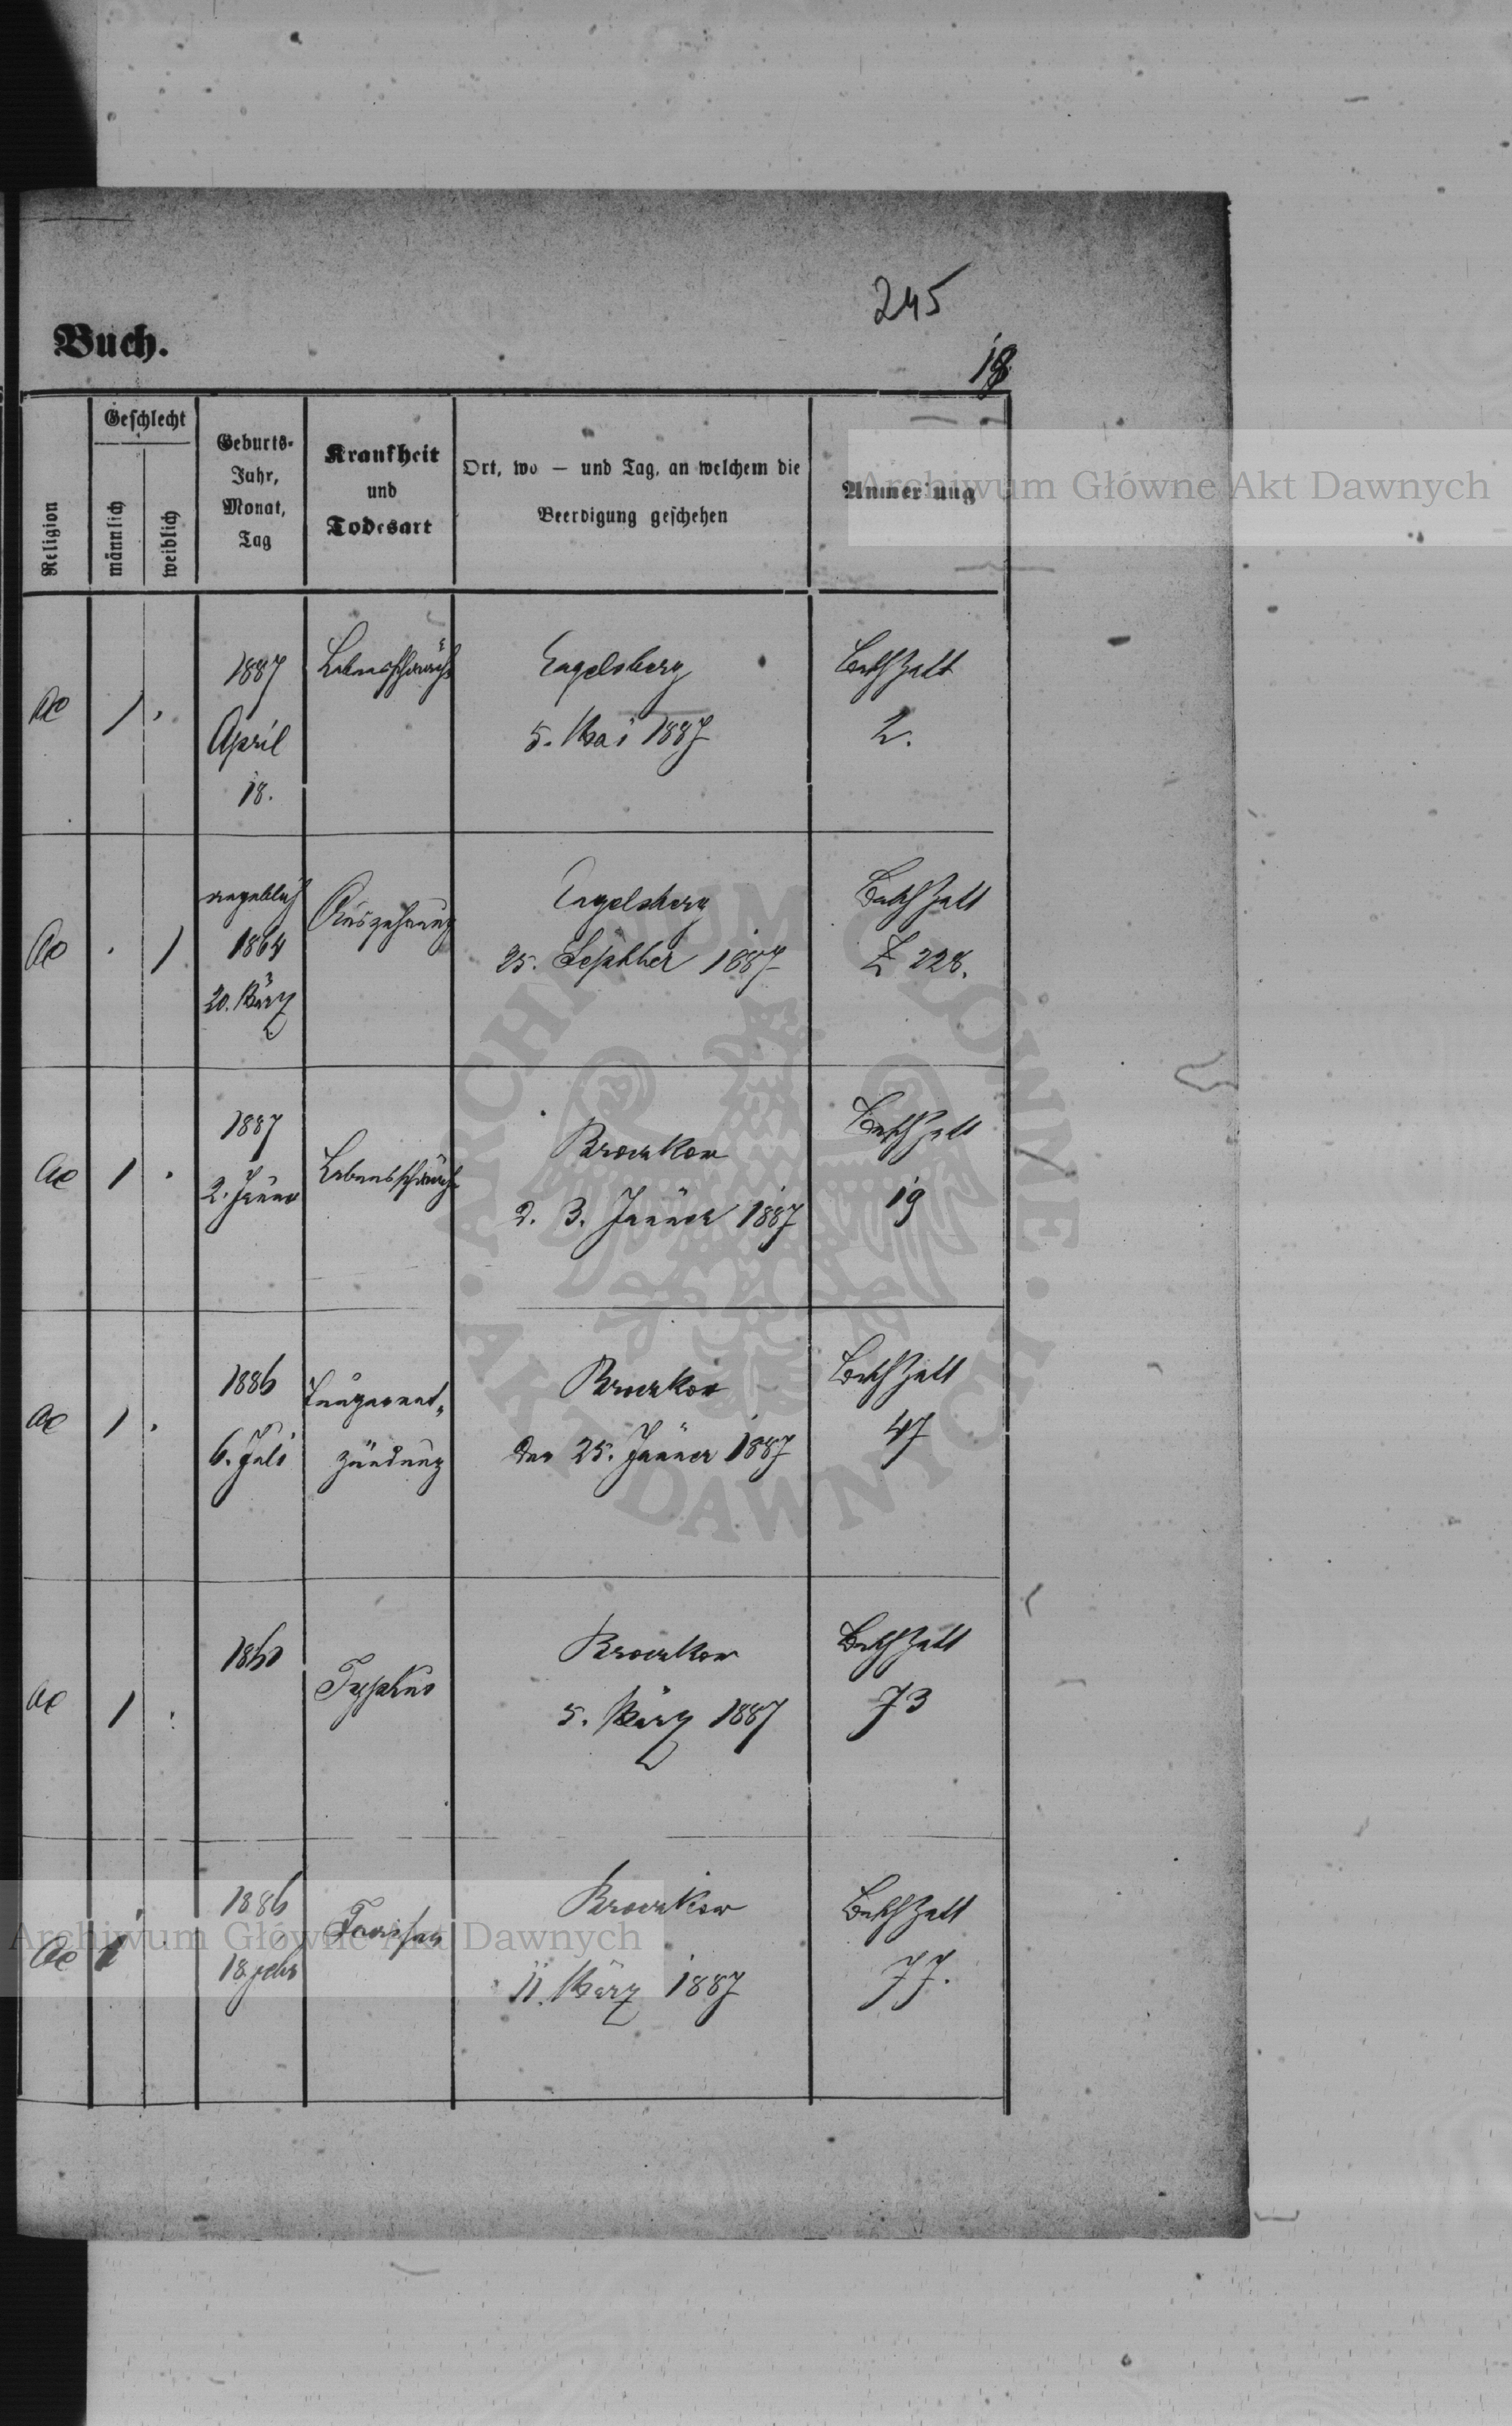 245
Buch.
18
Religion
Geschlecht
männlich
weiblich
Geburts-
Jahr,
Monat,
Tag
Krankheit
und
Todesart
Ort, wo — und Tag, an welchem die
Beerdigung geschehen
Anmerkung
Archiwum Główne Akt Dawnych
AC
1
1887
April
18.
Lebensschwäche
Engelsberg
5. Mai 1887
2.
AC
1
angeblich
1864
20. März
Auszehrung
Engelsberg
25. Septber 1887
Z 228.
AC
1
1887
2. Jänner
Lebensschwäche
Broczkow
d. 3. Jänner 1887
19
AC
1
1886
6. Juli
Lungenent„
zündung
Broczkow
den 25. Jänner 1887
47
AC
1
1860
Typhus
Broczkow
5. März 1887
73
AC
1
1886
18 Febr
Fraisen
Broczkow
11. März 1887
77.
Archiwum Główne Akt Dawnych
ARCHIWUM GŁÓWNE
AKT DAWNYCH